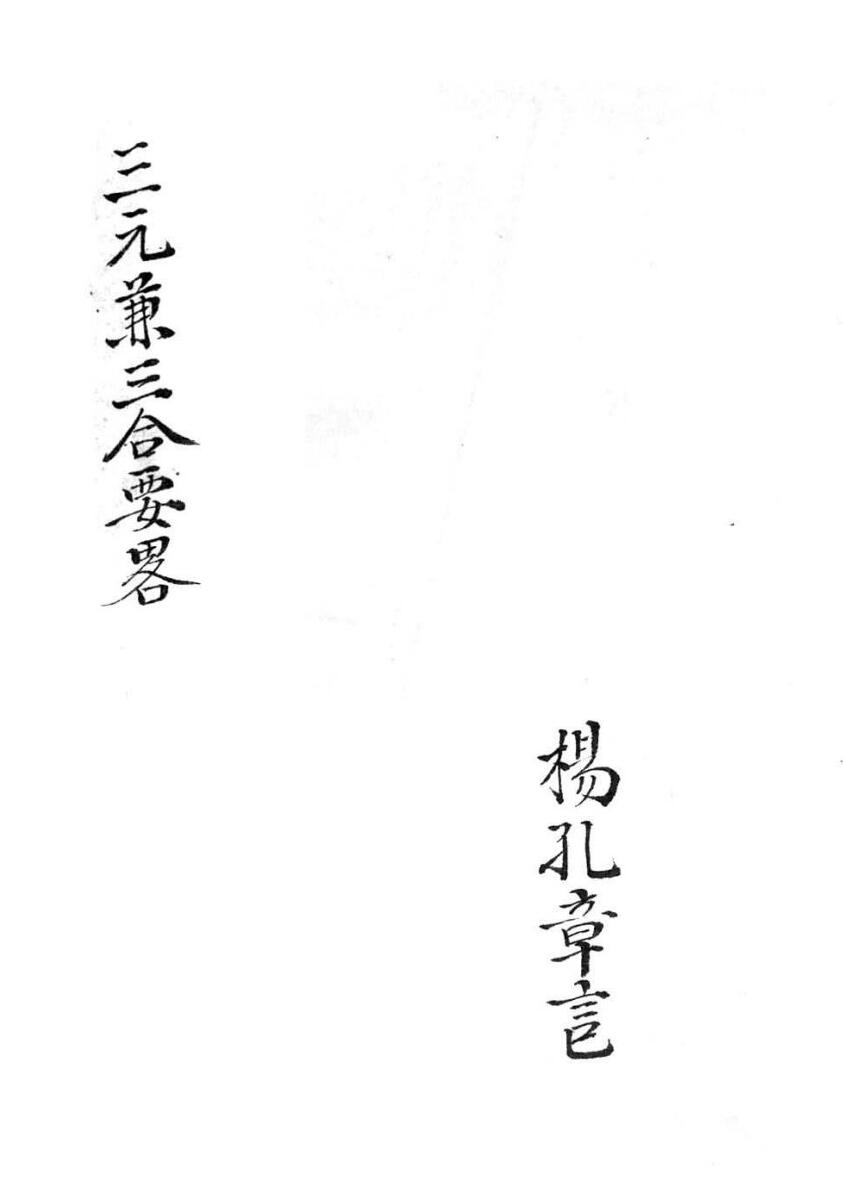 三元兼三合要畧
楊孔章記